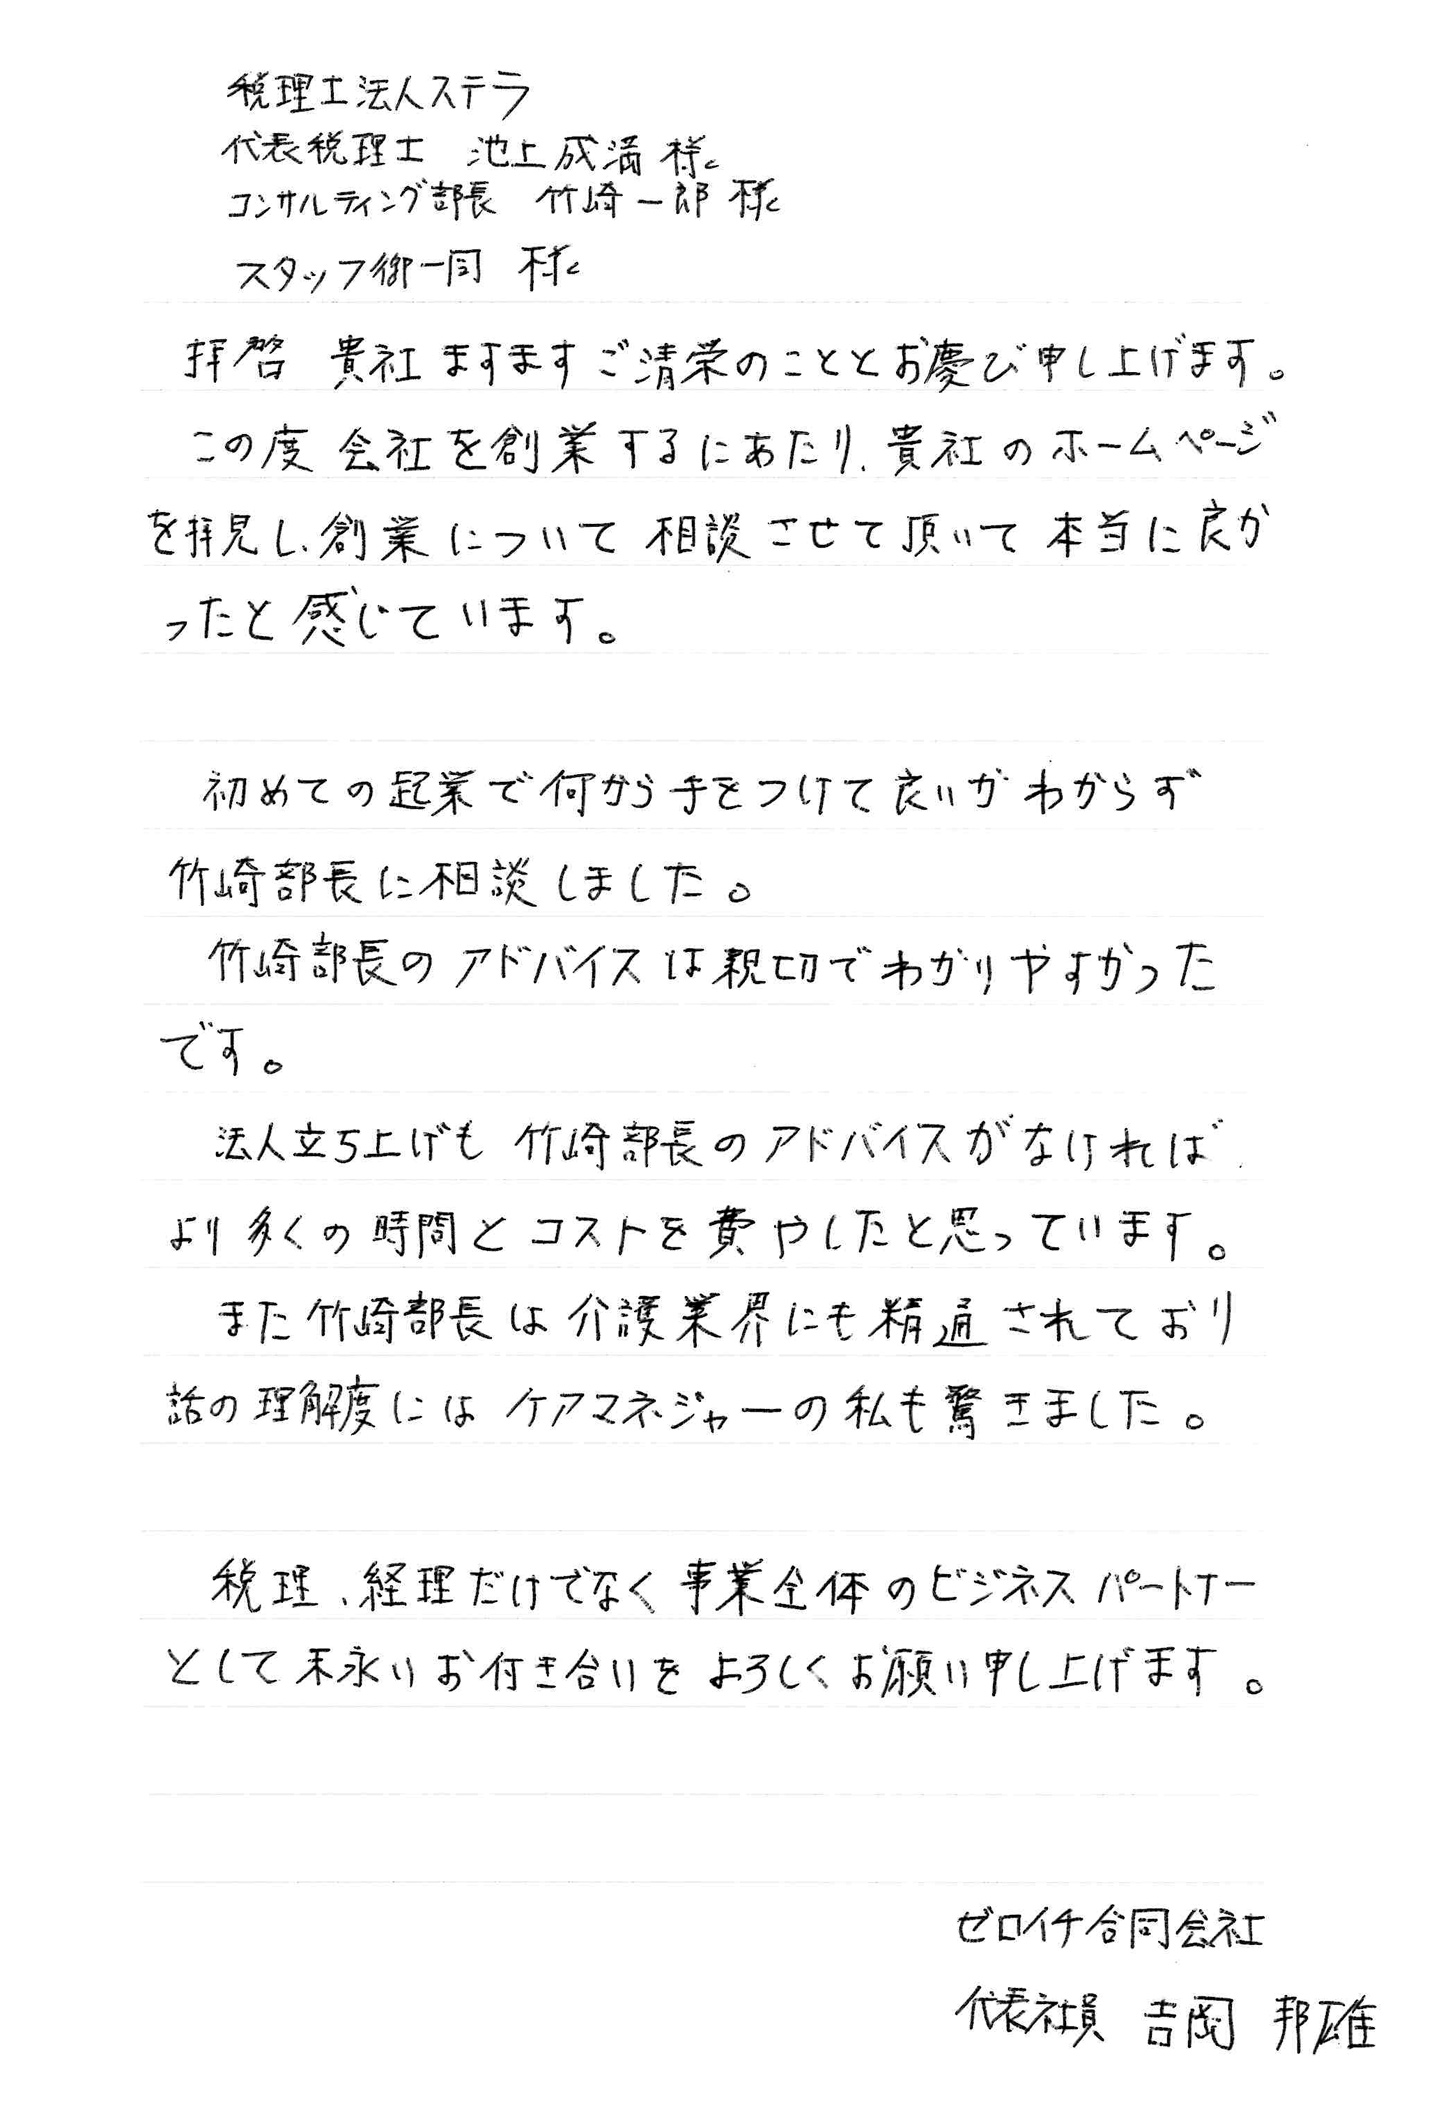 税理士法人ステラ
代表税理士 池上成満 様
コンサルティング部長 竹崎一郎 様
スタッフ御一同 様
拝啓 貴社ますますご清栄のこととお慶び申し上げます。
この度 会社を創業するにあたり、貴社のホームページ
を拝見し、創業について相談させて頂いて本当に良か
ったと感じています。
初めての起業で何から手をつけて良いかわからず
竹崎部長に相談しました。
竹崎部長のアドバイスは親切でわかりやすかった
です。
法人立ち上げも竹崎部長のアドバイスがなければ
より多くの時間とコストを費やしたと思っています。
また竹崎部長は介護業界にも精通されており
話の理解度にはケアマネジャーの私も驚きました。
税理、経理だけでなく事業全体のビジネスパートナー
として末永いお付き合いをよろしくお願い申し上げます。
ゼロイチ合同会社
代表社員 吉岡 邦雄